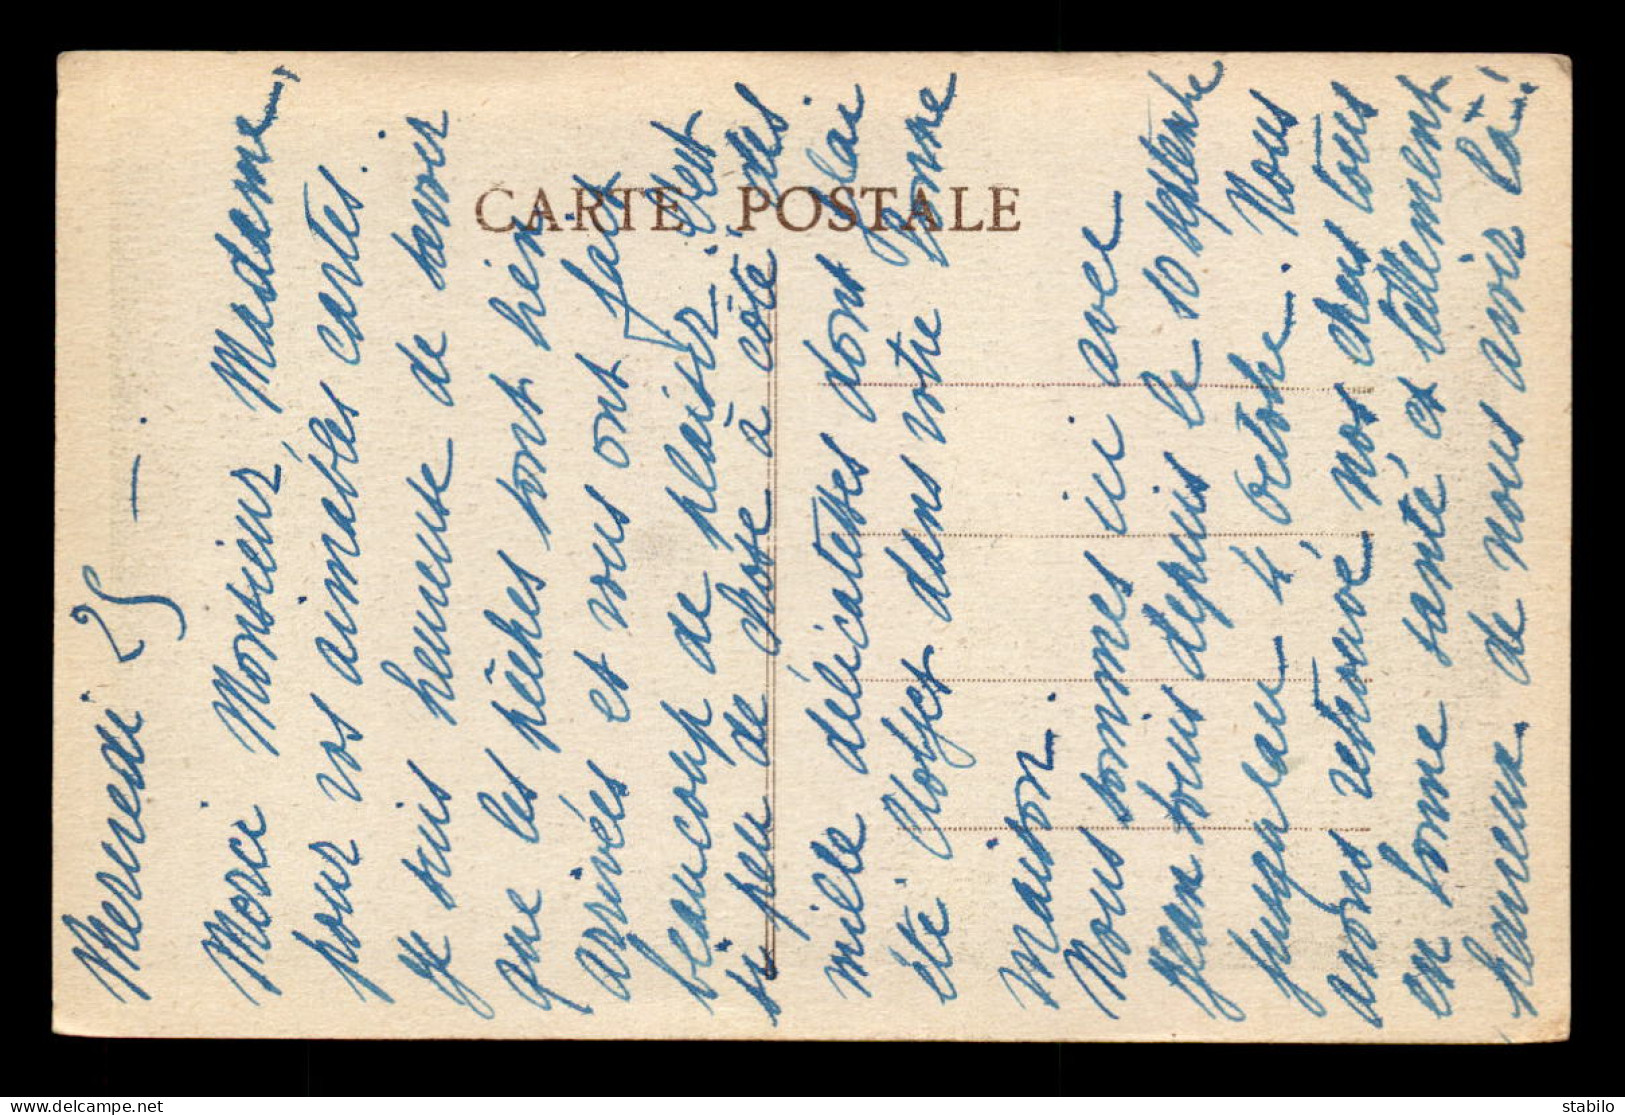 CARTE POSTALE
Mercredi 25 —.
Merci Monsieur, Madame,
pour vos aimables cartes.
Je suis heureuse de savoir
que les pêches sont bien
arrivées et vous ont fait
beaucoup de plaisir. C'est
si peu de chose à côté des
mille délicatesses dont j'ai
été l'objet dans votre bonne
maison.
Nous sommes ici avec
Jean tous depuis le 10 septembre
jusqu'au 4 octobre. Nous
avons retrouvé nos chers tous
en bonne santé et tellement
heureux de nous avoir là!
stabilo